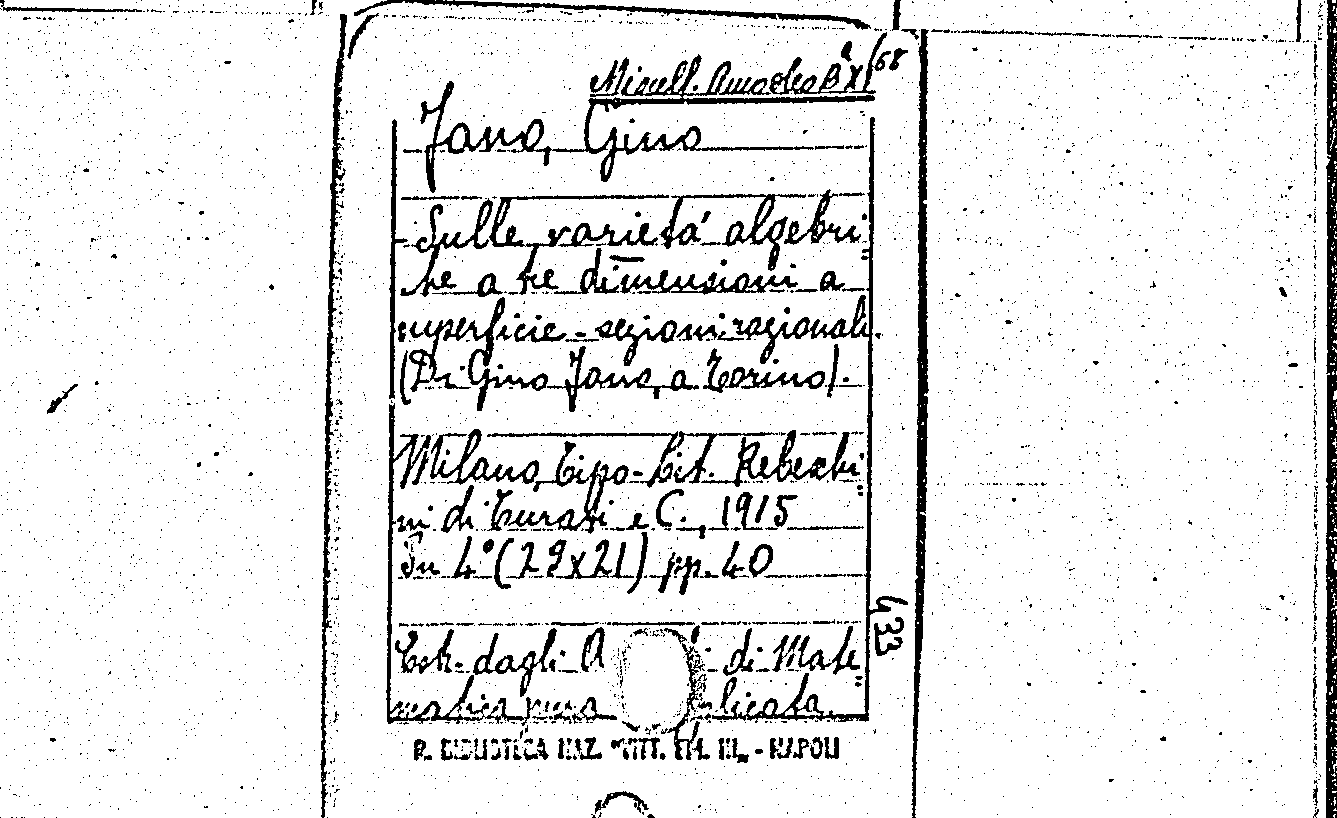 Miscell. Amodeo Bª XI/68
Fano, Gino
- Sulle varietà algebri"
che a tre dimensioni a
superficie-sezioni razionali.
(Di Gino Fano, a Torino).
Milano, Tipo-Lit. Rebeschi"
ni di Turati e C., 1915
In 4° (29x21) pp. 40
433
Estr. dagli A i di Mate"
matica pura plicata.
R. BIBLIOTECA NAZ. "VITT. EM. III„ - NAPOLI